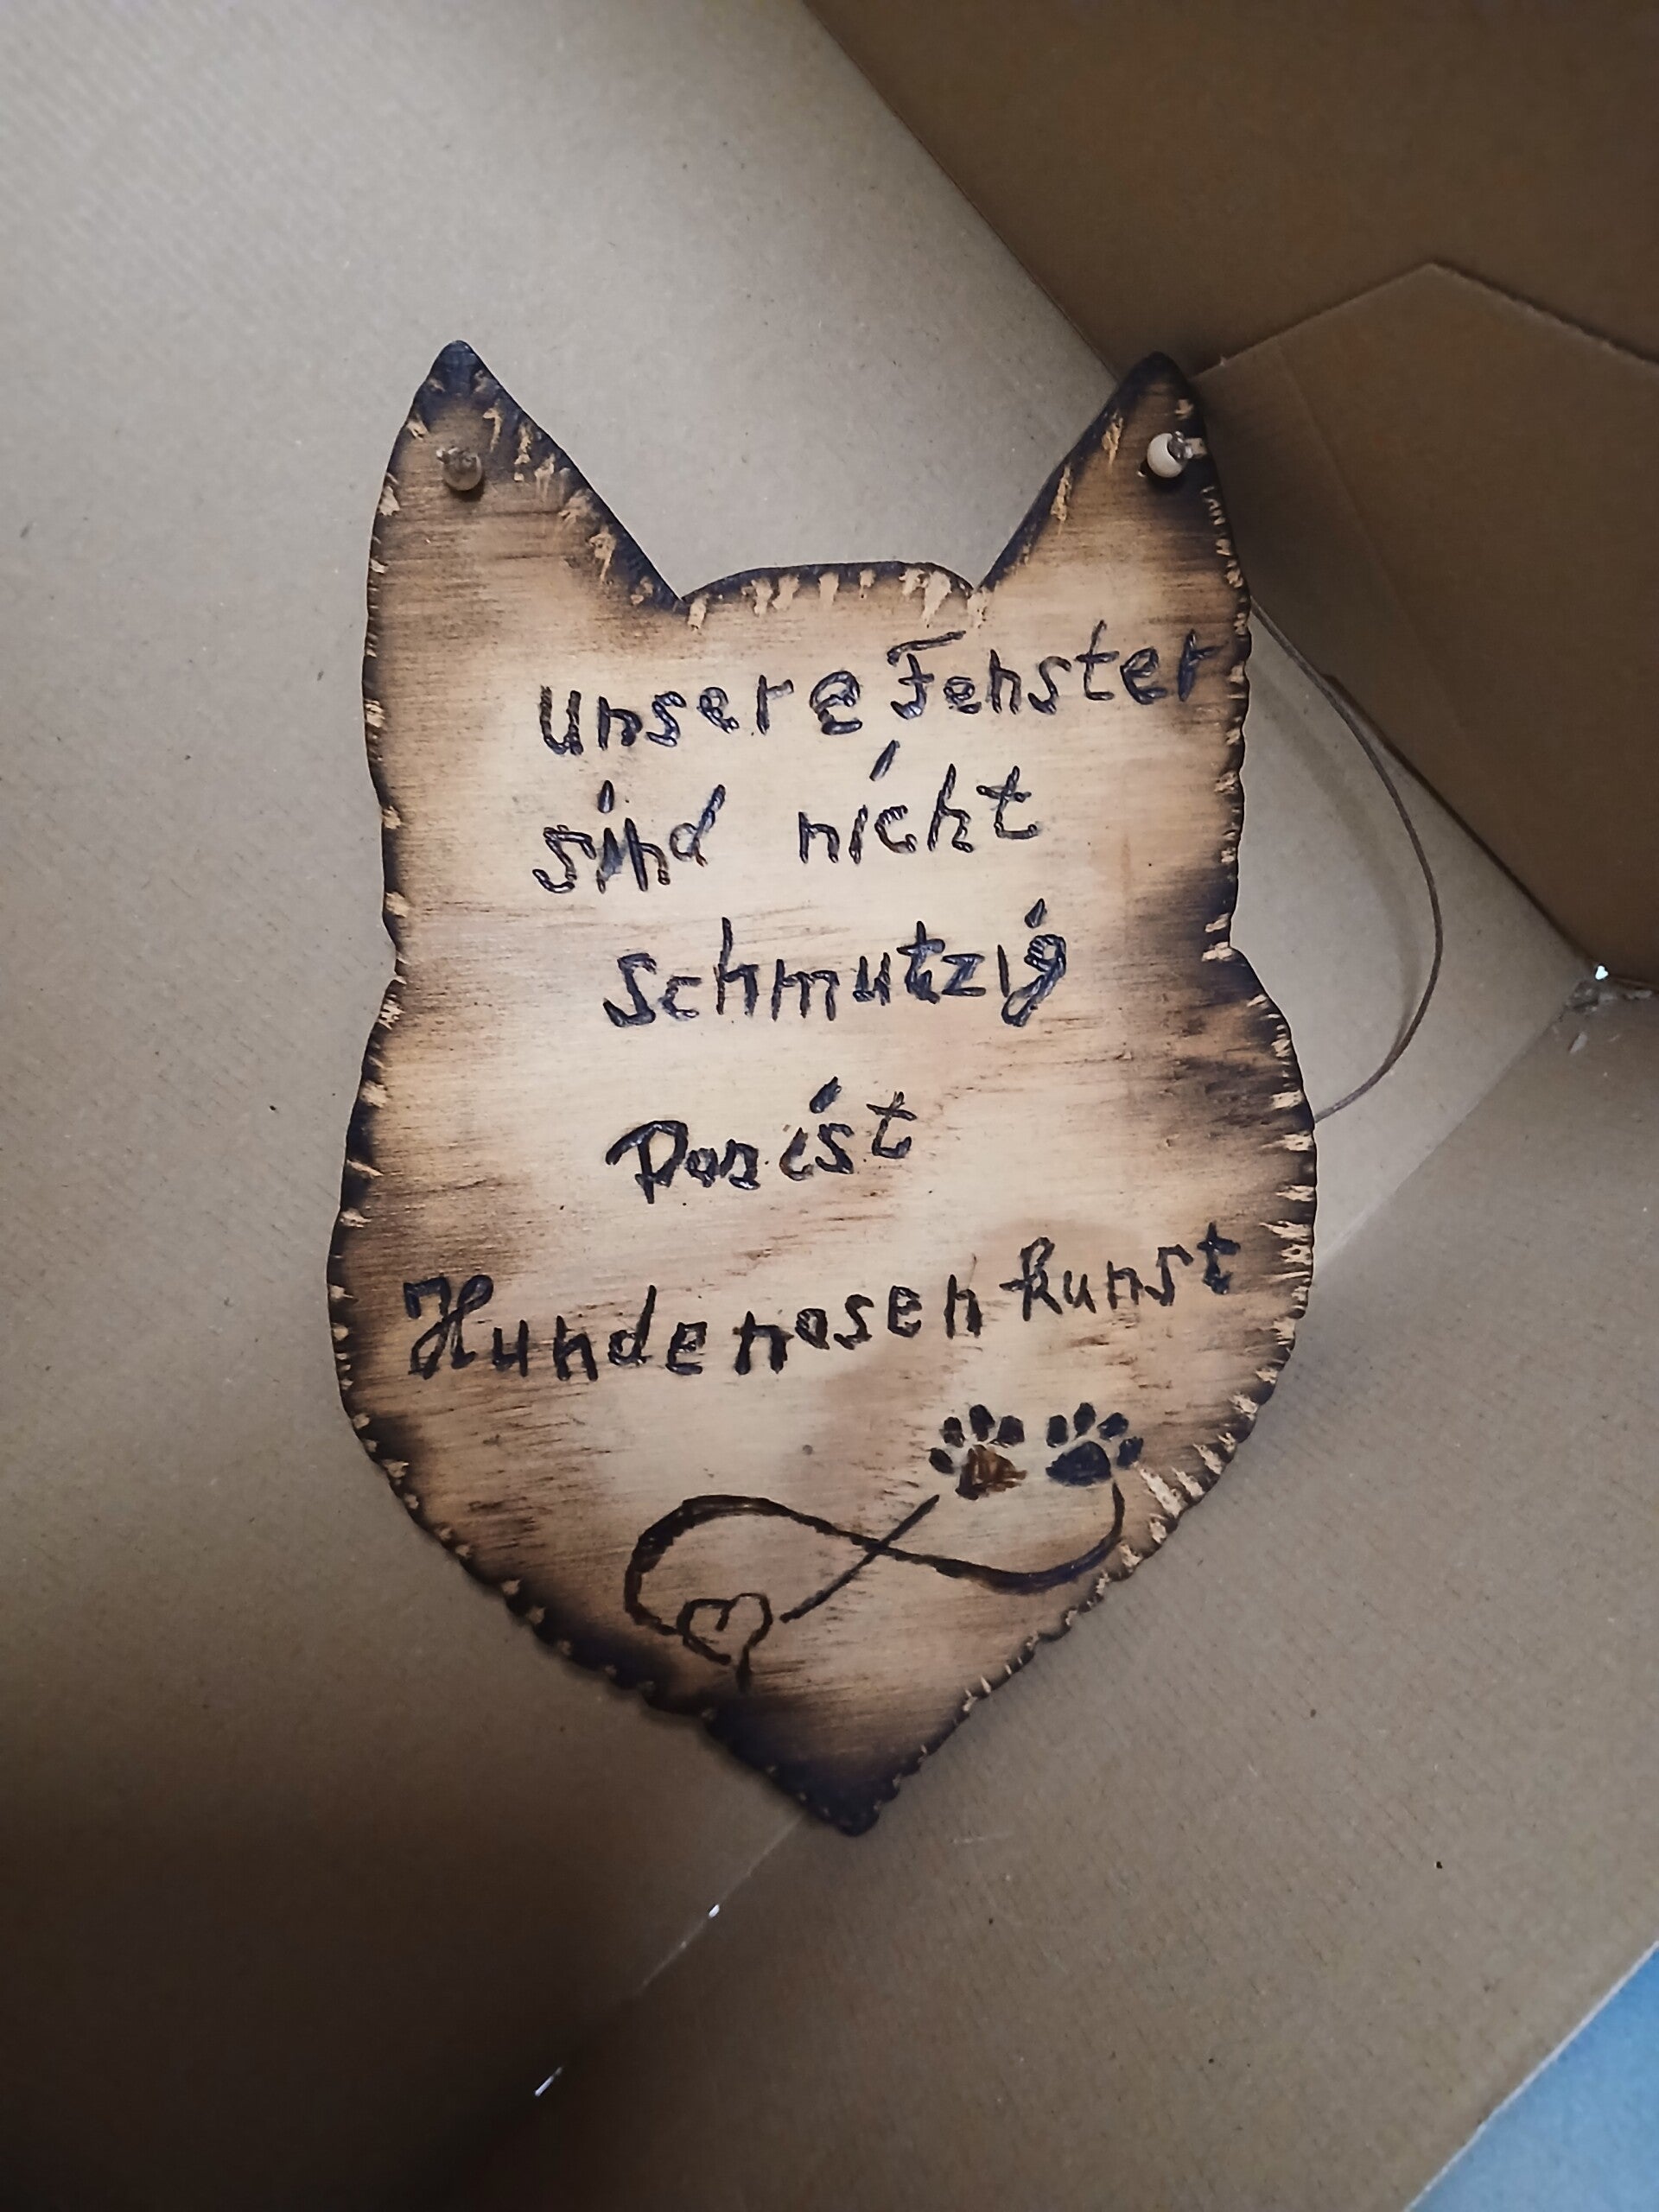 unsere Fenster
sind nicht
schmutzig
Das ist
Hundenasenkunst